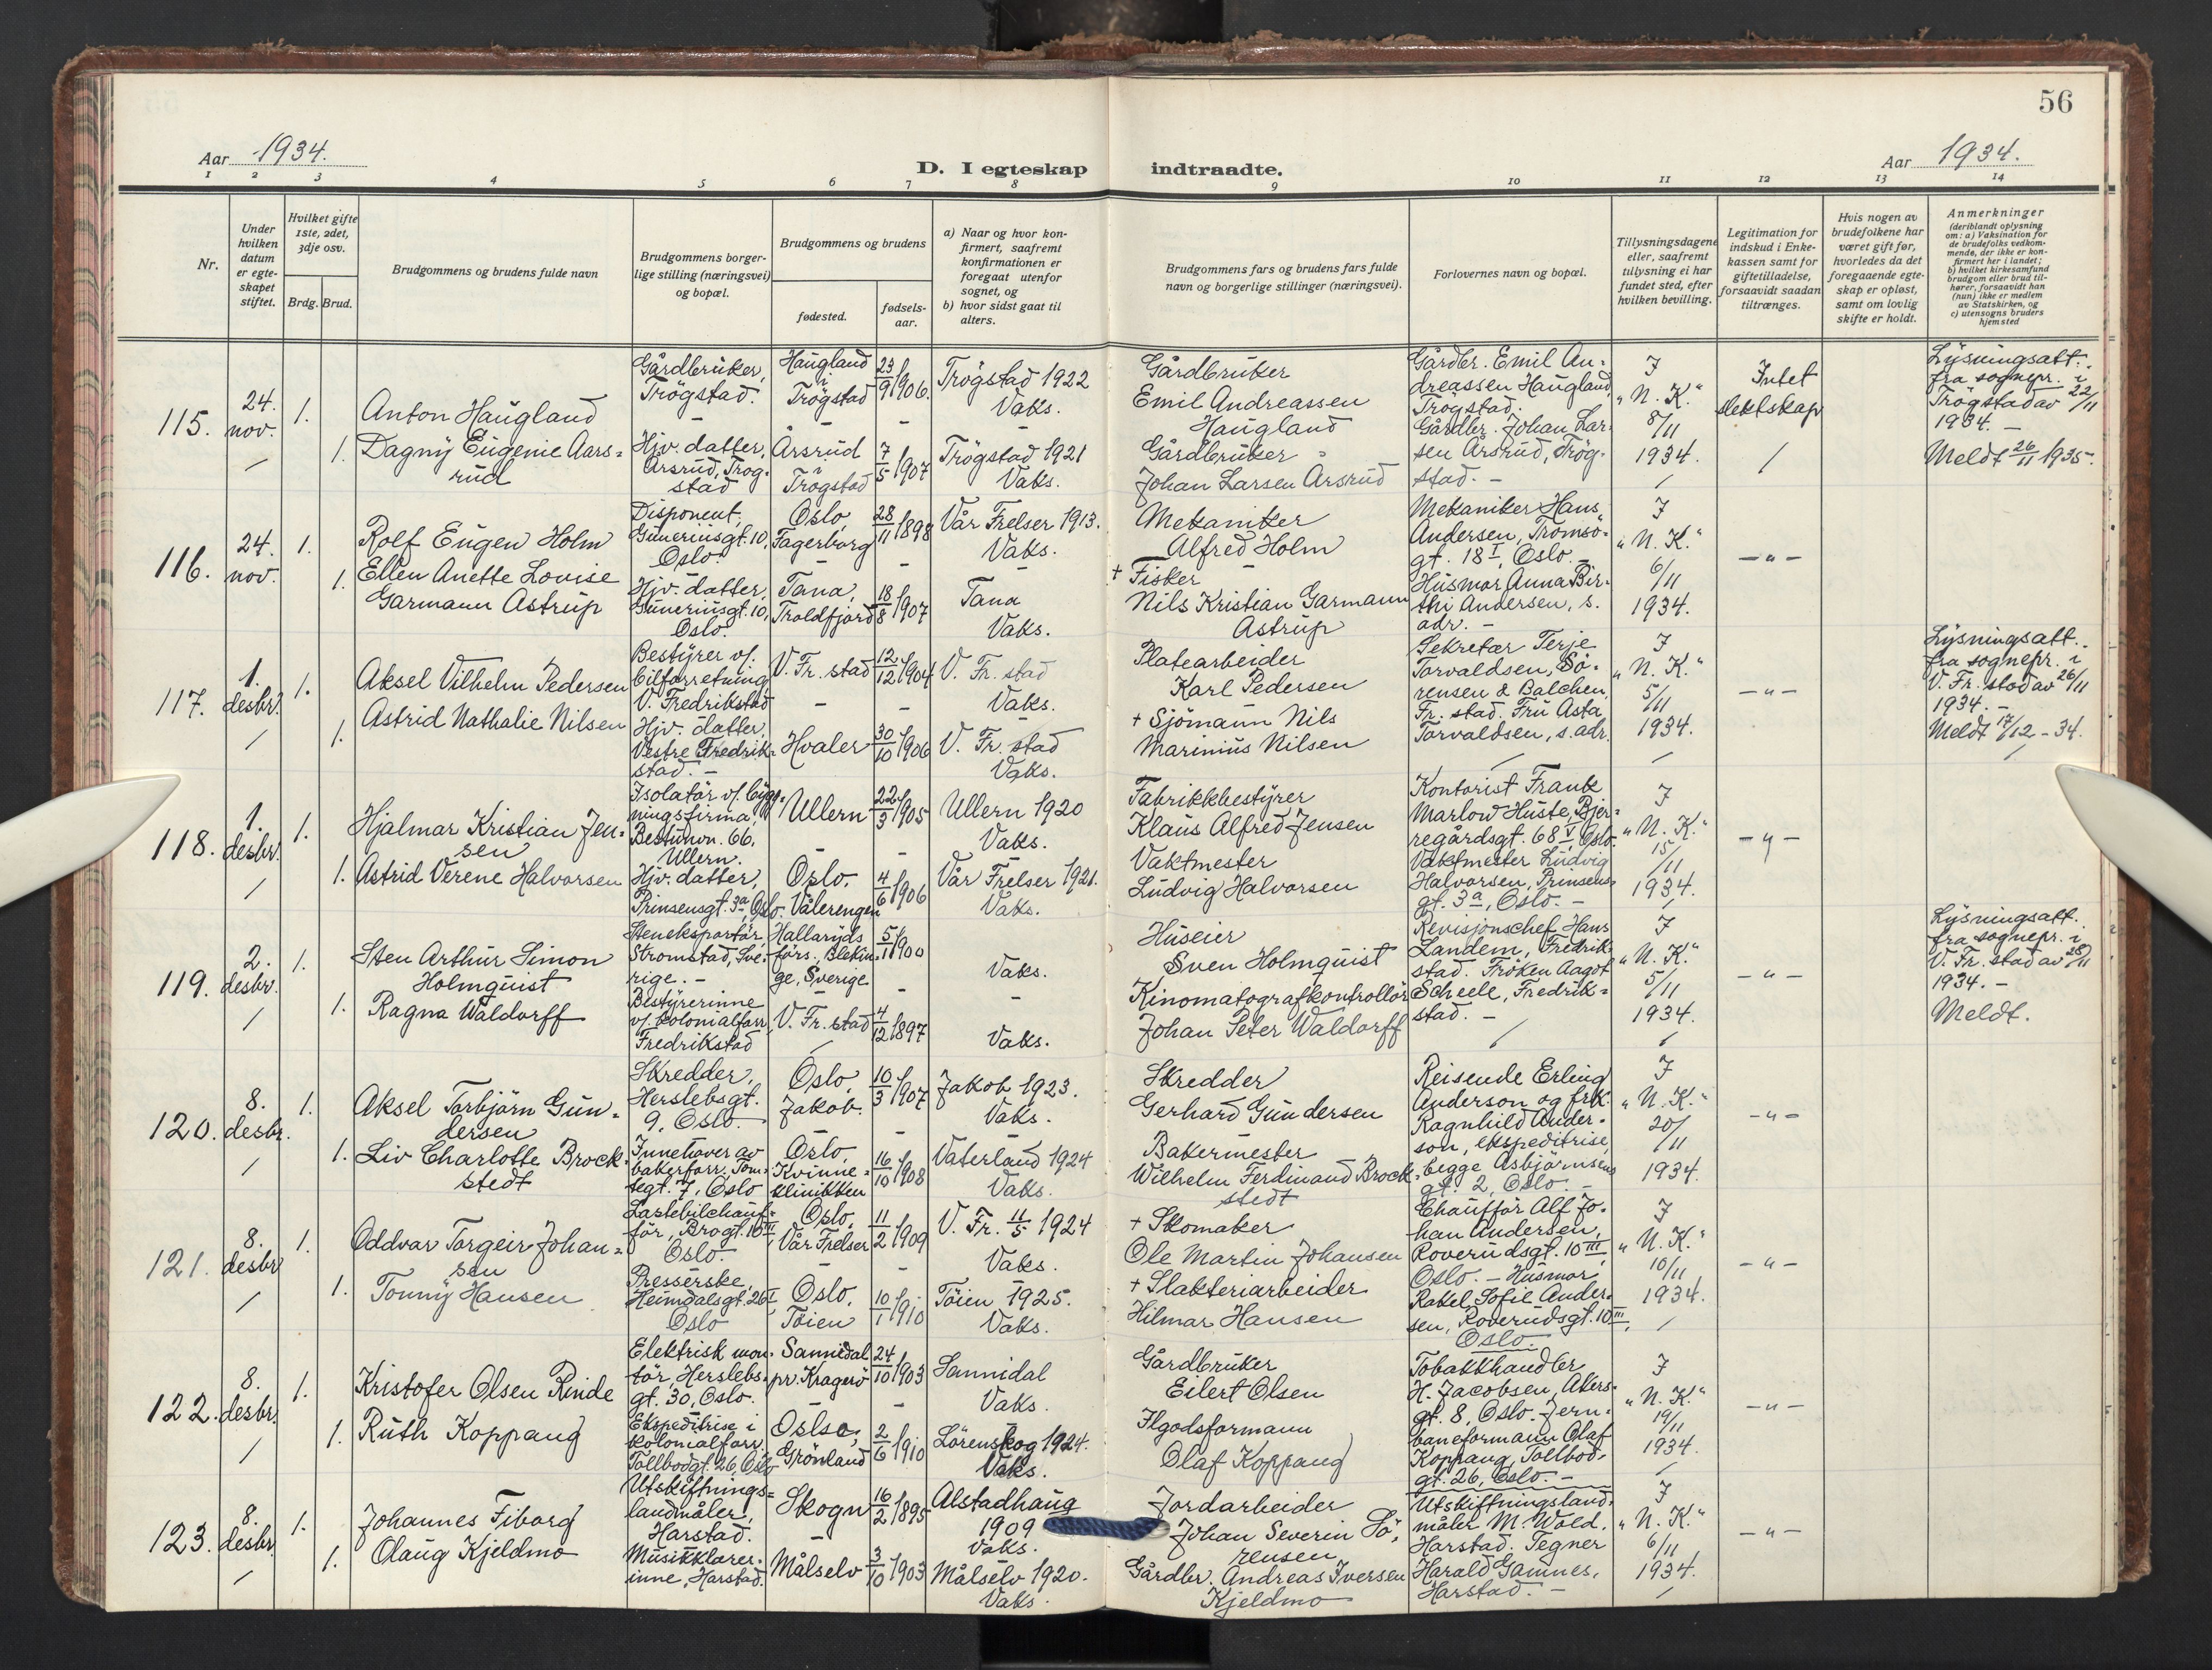 56
Aar 1934.
D. I egteskap indtraadte.
Aar 1934.
1 2 3 4 5 6 7 8 9 10 11 12 13 14
Nr.
Under hvilken datum er egteskapet stiftet.
Hvilket gifte 1ste, 2det, 3dje osv.
Brdg. Brud.
Brudgommens og brudens fulde navn
Brudgommens borgerlige stilling (næringsvei) og bopæl.
Brudgommens og brudens
fødested.
fødselsaar.
a) Naar og hvor konfirmert, saafremt konfirmationen er foregaat utenfor sognet, og
b) hvor sidst gaat til alters.
Brudgommens fars og brudens fars fulde navn og borgerlige stillinger (næringsvei).
Forlovernes navn og bopæl.
Tillysningsdagene eller, saafremt tillysning ei har fundet sted, efter hvilken bevilling.
Legitimation for indskud i Enkekassen samt for giftetilladelse, forsaavidt saadan tiltrænges.
Hvis nogen av brudefolkene har været gift før, hvorledes da det foregaaende egteskap er opløst, samt om lovlig skifte er holdt.
Anmerkninger
(deriblandt oplysning om: a) Vaksination for de brudefolks vedkommende, der ikke er konfirmert her i landet; b) hvilket kirkesamfund brudgom eller brud tilhører, forsaavidt han (hun) ikke er medlem av Statskirken, og c) utensogns bruders hjemsted
115. 24. nov. 1.
Anton Haugland
Gårdbruker, Trögstad.
Haugland i Trögstad
23/9 1906.
Trögstad 1922
Vaks.
Gårdbruker
Emil Andreassen
Haugland
Gårdbr. Emil Andreassen Haugland, Trögstad.
Gårdbr. Johan Larsen Årsrud, Trögstad. -
I "N. K." 8/11 1934.
Intet slektskap
Lysningsatt. fra sognepr. i Trögstad av 22/11 1934. -
Meldt 26/11 1935.
1. Dagny Eugenie Aarsrud
Hjv. datter, Årsrud, Trögstad
Årsrud i Trögstad
7/5 1907
Trögstad 1921
Vaks.
Gårdbruker
Johan Larsen Årsrud
116. 24. nov. 1.
Rolf Eugen Holm
Disponent, Guneriusgt. 10, Oslo.
Oslo, Fagerborg
28/11 1898
Vår Frelser 1913.
Vaks.
Mekaniker
Alfred Holm
Mekaniker Hans Andersen, Tromsögt. 18 I, Oslo. -
Husmor Anna Birthi Andersen, s. adr. -
I "N. K." 6/11 1934.
- " -
1. Ellen Anette Lovise Garmann Astrup
Hjv. datter, Guneriusgt. 10, Oslo.
Tana, Troldfjord
18/8 1907
Tana
Vaks.
+ Fisker
Nils Kristian Garmann Astrup
117. 1. desbr. 1.
Aksel Vilhelm Pedersen
Bestyrer v/. bilforretning V. Fredrikstad
V. Fr. stad
12/12 1904
V. Fr. stad
Vaks.
Platearbeider
Karl Pedersen
Sekretær Terje Torvaldsen, Sörensen & Balchen, Fr. stad. Fru Asta Torvaldsen, s. adr.
I "N. K." 5/11 1934.
- " -
Lysningsatt. fra sognepr. i V. Fr. stad av 26/11 1934. -
Meldt 17/12 - 34.
1. Astrid Nathalie Nilsen
Hjv. datter, Vestre Fredrikstad. -
Hvaler
30/10 1906
V. Fr. stad
Vaks.
+ Sjömann Nils Marinius Nilsen
118. 1. desbr. 1.
Hjalmar Kristian Jensen
Isolatör v/. bygningsfirma, Bestunvn. 66, Ullern.
Ullern
22/3 1905
Ullern 1920
Vaks.
Fabrikkbestyrer
Klaus Alfred Jensen
Kontorist Frank Marlow Huste, Bjerregårdsgt. 68 V, Oslo.
Vaktmester Ludvig Halvorsen, Prinsensgt. 3 a, Oslo. -
I "N. K." 15/11 1934.
- " -
1. Astrid Verene Halvorsen
Hjv. datter, Prinsensgt. 3a, Oslo.
Oslo, Vålerengen
4/6 1906
Vår Frelser 1921.
Vaks.
Vaktmester
Ludvig Halvorsen
119. 2. desbr. 1.
Sten Arthur Simon Holmquist
Steneksportör, Strömstad, Sverige. -
Hallaryds förs., Blekinge, Sverige
5/11 1900
Vaks.
Huseier
Sven Holmquist
Revisjonschef Hans Landem, Fredrikstad. Fröken Aagot Scheele, Fredrikstad. -
I "N. K." 5/11 1934.
- " -
Lysningsatt. fra sognepr. i V. Fr. stad av 28/11 1934. -
Meldt.
1. Ragna Waldorff
Bestyrerinne v/. kolonialforr., Fredrikstad
V. Fr. stad
4/12 1897
Vaks.
Kinomatografkontrollör
Johan Peter Waldorff
120. 8. desbr. 1.
Aksel Torbjörn Gundersen
Skredder, Herslebsgt. 9, Oslo.
Oslo, Jakob.
10/3 1907
Jakob 1923.
Vaks.
Skredder
Gerhard Gundersen
Reisende Erling Anderson og frk. Ragnhild Anderson, ekspeditrise, begge Asbjörnsensgt. 2, Oslo. -
I "N. K." 20/11 1934.
- " -
1. Liv Charlotte Brockstedt
Innehaver av bakerforr. Tomtegt. 7, Oslo
Oslo, Kvinneklinikken
16/10 1908
Vaterland 1924
Vaks.
Bakermester
Wilhelm Ferdinand Brockstedt
121. 8. desbr 1.
Oddvar Torgeir Johansen
Lastebilchauffør, Brogt. 10 III, Oslo.
Oslo, Vår Frelser
11/2 1909
V. Fr. 11/5 1924
Vaks.
+ Skomaker
Ole Martin Johansen
Chauffør Alf Johan Andersen, Roverudsgt. 10 III, Oslo. - Husmor Rakel Sofie Andersen, Roverudsgt. 10 III, Oslo.
I "N. K." 10/11 1934.
- " -
1. Tonny Hansen
Presserske, Heimdalsgt. 26 I Oslo
Oslo, Töien
10/1 1910
Töien 1925.
Vaks.
+ Slakteriarbeider
Hilmar Hansen
122. 8. desbr. 1.
Kristofer Olsen Rinde
Elektrisk montör, Herslebsgt. 30, Oslo.
Sannidal pr. Kragerö
24/10 1903
Sannidal
Vaks.
Gårdbruker
Eilert Olsen
Tobakkhandler H. Jacobsen, Akersgt. 8, Oslo. Jernbaneformann Olaf Koppang, Tollbodgt. 26, Oslo. -
I "N. K." 19/11 1934.
- " -
1. Ruth Koppang
Ekspeditrise i kolonialforr. Tollbodgt. 26, Oslo
Oslo, Grönland
2/6 1910
Lörenskog 1924.
Vaks.
Ilgodsformann
Olaf Koppang
123. 8. desbr. 1.
Johannes Fiborg
Utskiftningslandmåler, Harstad.
Skogn
16/2 1895
Alstadhaug 1909
Vaks.
Jordarbeider
Johan Severin Sörensen
Utskiftningslandmåler M. Wold, Harstad. Tegner Harald Gamnes, Harstad. -
I "N. K." 6/11 1934.
- " -
1. Olaug Kjeldmo
Musikklærerinne, Harstad.
Målselv
3/10 1903
Målselv 1920.
Vaks.
Gårdbr. Andreas Iversen Kjeldmo